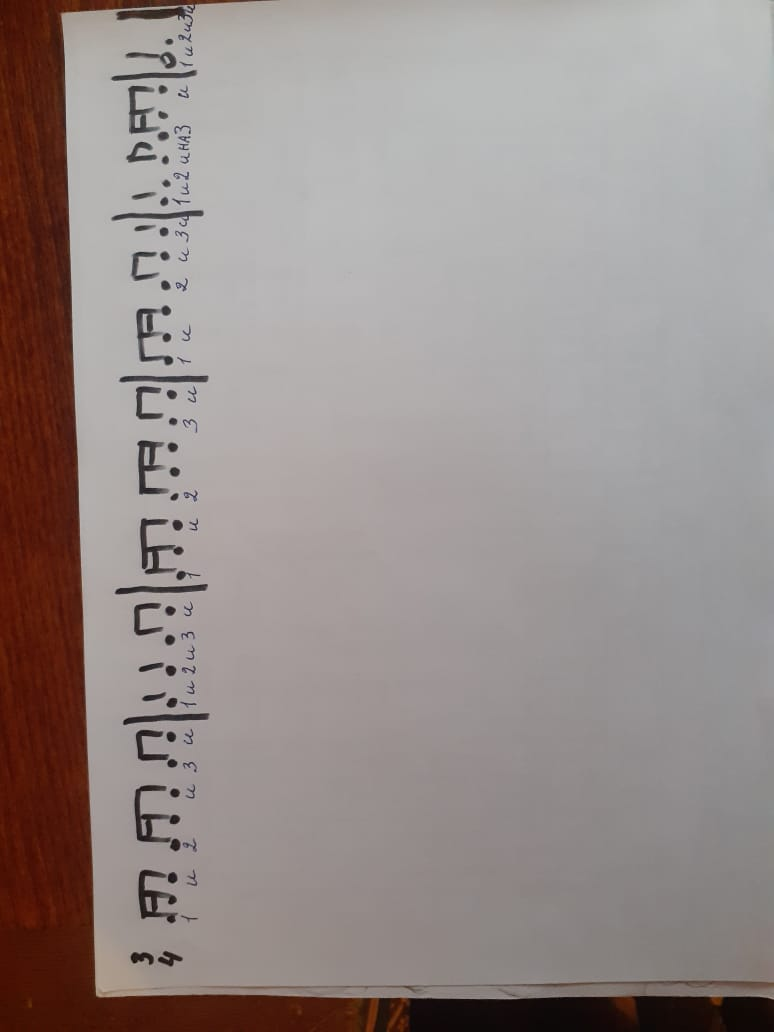 3
4
1 и 2 и 3 и 1 и 2 и 3 и 1 и 2 3 и 1 и 2 и 3 и 1 и 2 и НА3 и 1 и 2 и 3 и